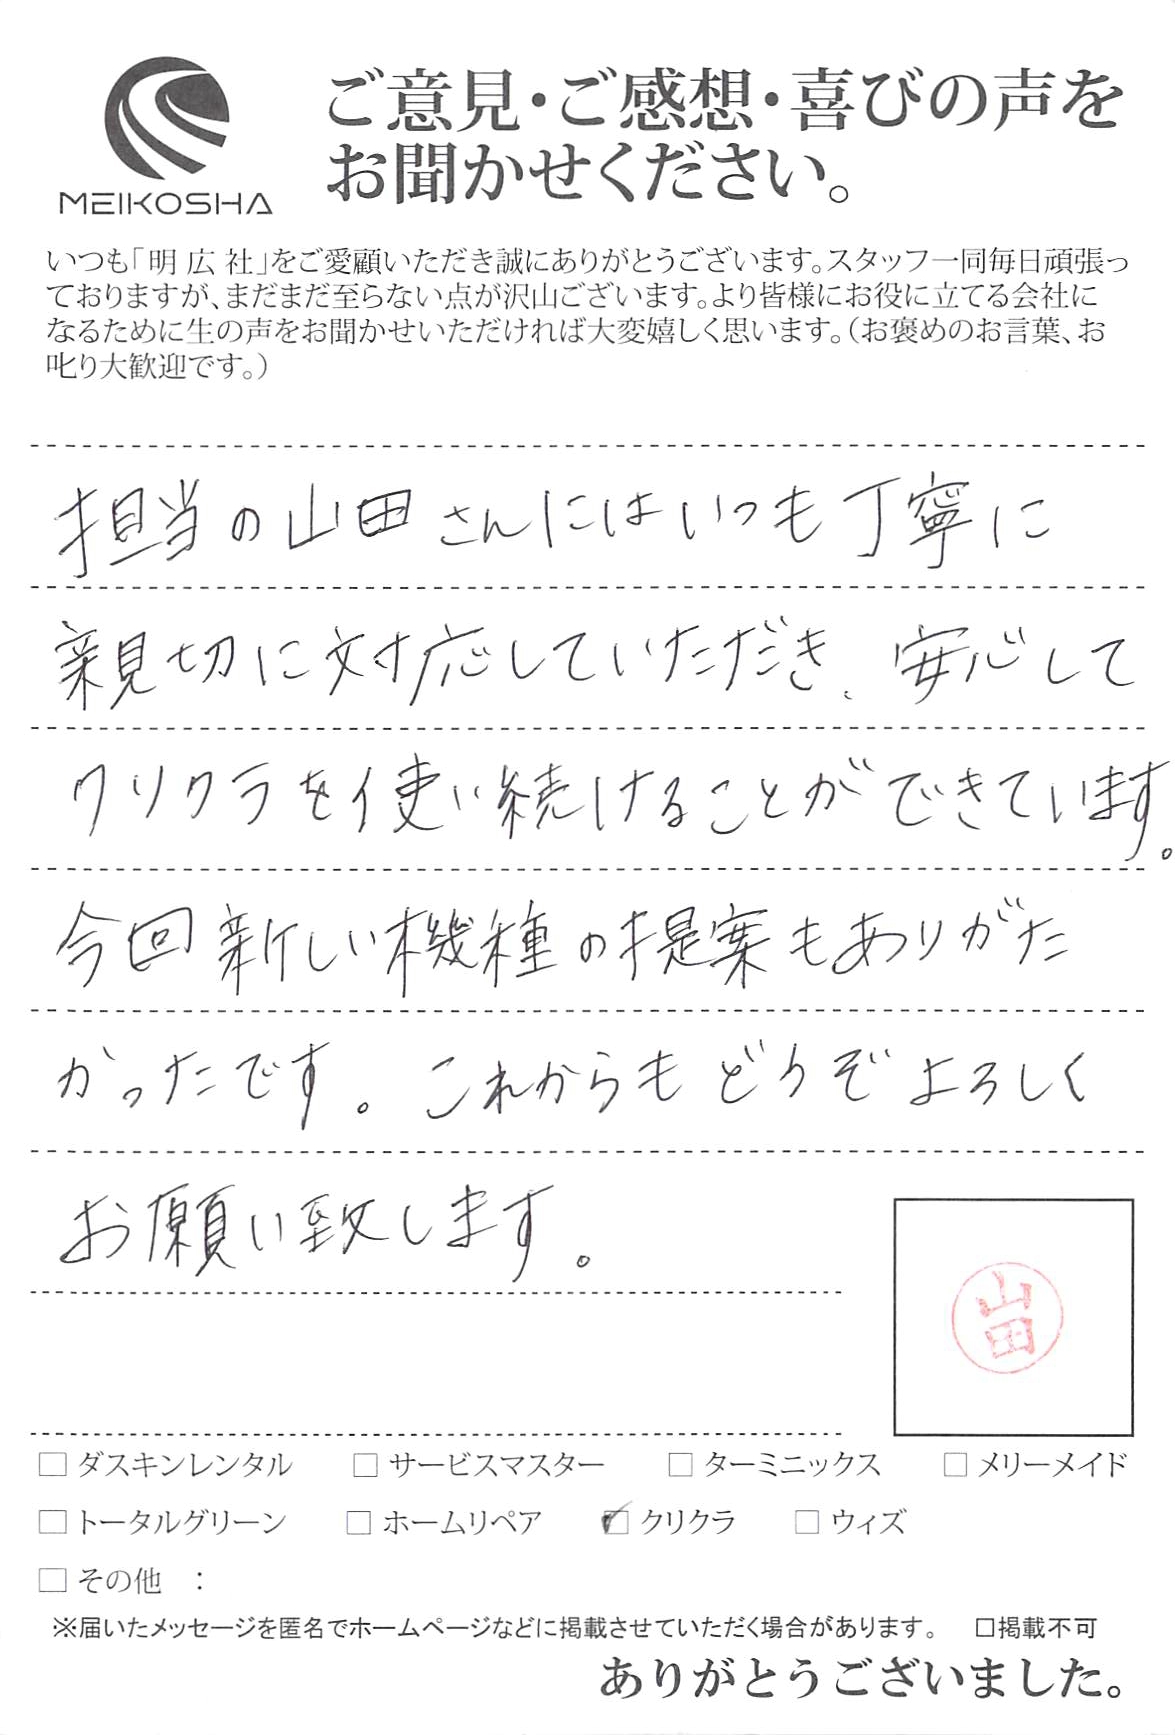 MEIKOSHA
ご意見・ご感想・喜びの声を
お聞かせください。
いつも「明広社」をご愛顧いただき誠にありがとうございます。スタッフ一同毎日頑張っ
ておりますが、まだまだ至らない点が沢山ございます。より皆様にお役に立てる会社に
なるために生の声をお聞かせいただければ大変嬉しく思います。（お褒めのお言葉、お
叱り大歓迎です。）
担当の山田さんにはいつも丁寧に
親切に対応していただき、安心して
クリクラを使い続けることができています。
今回新しい機種の提案もありがた
かったです。これからもどうぞよろしく
お願い致します。
山田
□ ダスキンレンタル □ サービスマスター □ ターミニックス □ メリーメイド
□ トータルグリーン □ ホームリペア ☑ クリクラ □ ウィズ
□ その他 ：
※届いたメッセージを匿名でホームページなどに掲載させていただく場合があります。 □掲載不可
ありがとうございました。